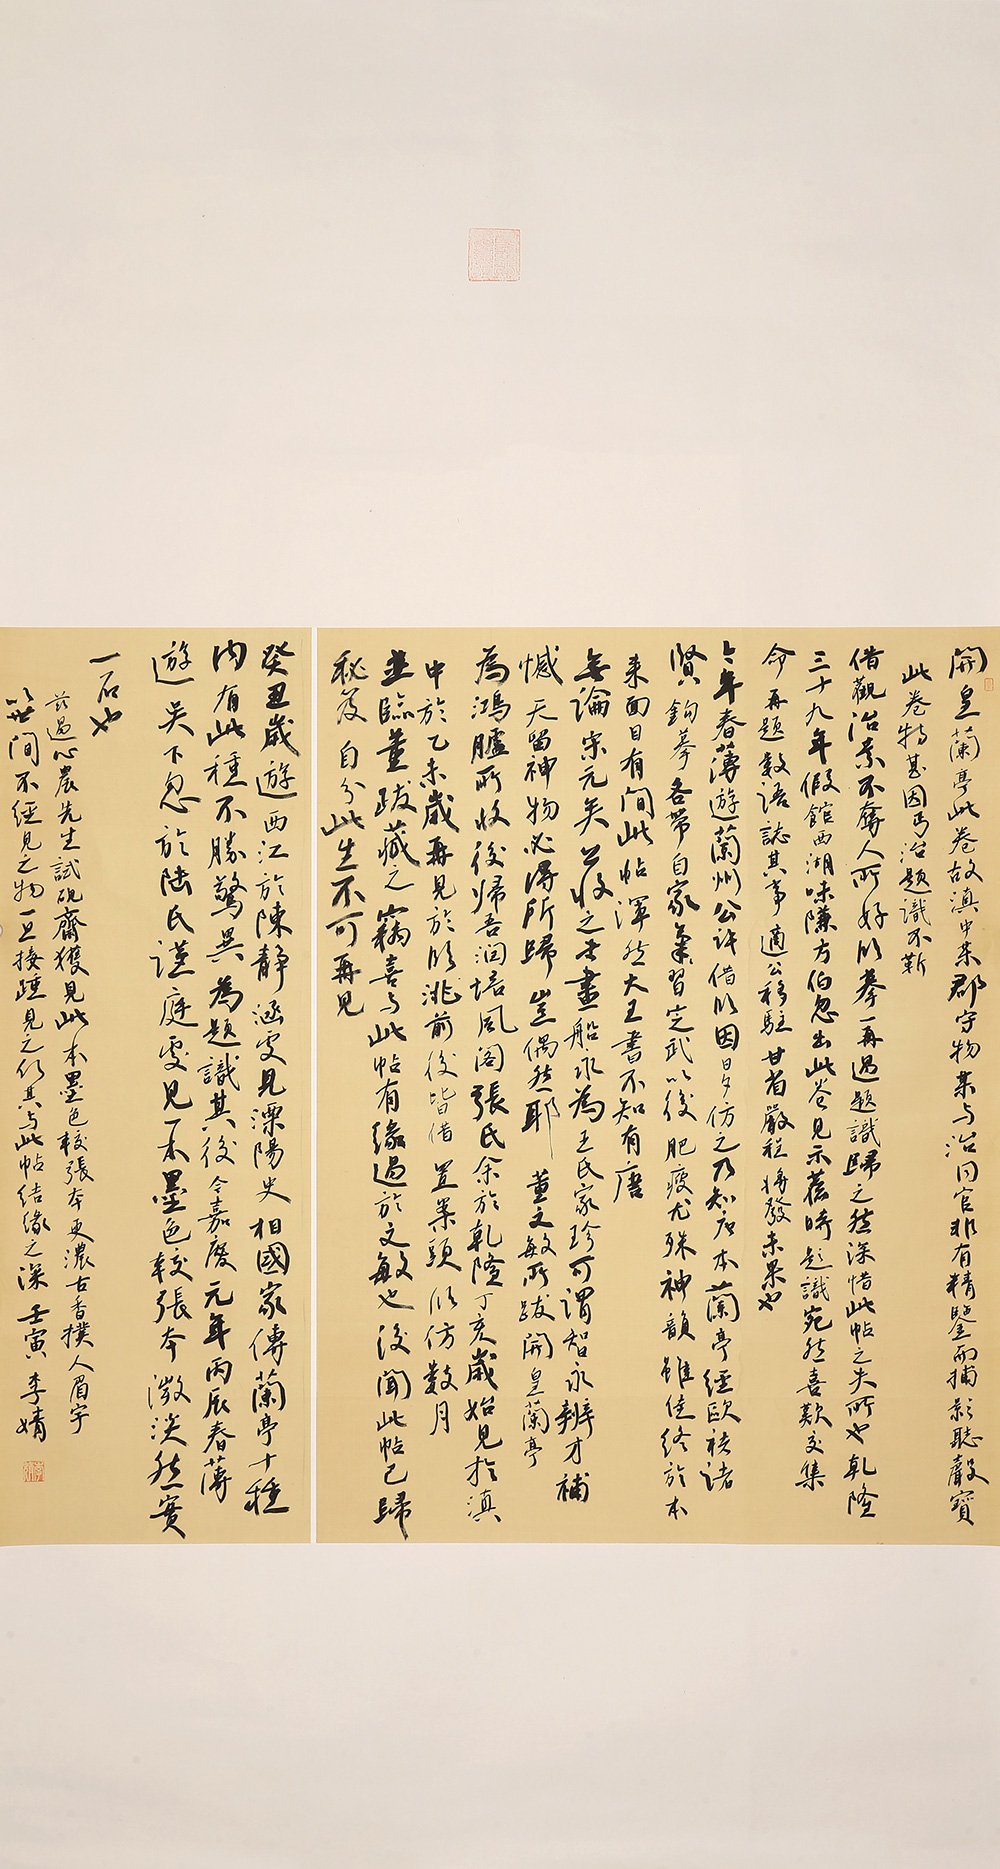 開皇蘭亭此卷故滇中某郡守物某与冶同官非有精鑒而捕影聽聲寶
此卷特甚因丐冶題識不靳
借觀冶素不奪人所好以摹一再過題識歸之然深惜此帖之失所也乾隆
三十九年假館西湖味陳方伯忽出此卷見示舊時題識宛然喜歎交集
命再題數語誌其事適公移駐甘省嚴程將發未果也
今年春薄遊蘭州公許借以因日夕仿之乃知唐本蘭亭經歐褚諸
賢鉤摹各帶自家氣習定武以後肥瘦尤殊神韻雖佳終於本
来面目有間此帖渾然大王書不知有唐
無論宋元矣公收之書畫船永為王氏家珍可謂智永辨才補
憾天留神物必得所歸豈偶然耶董文敏所跋開皇蘭亭
為鴻臚所收後歸吾潤培風阁張氏余於乾隆丁亥歲始見於滇
中於乙未歲再見於臨洮前後皆借置案頭臨仿數月
並臨董跋藏之竊喜与此帖有緣過於文敏也後聞此帖已歸
秘笈自分此生不可再見
癸丑歲遊西江於陳静涵處見溧陽史相國家傳蘭亭十種
内有此種不勝驚異為題識其後今嘉慶元年丙辰春薄
遊吴下忽於陆氏謹庭處見一本墨色較張本微淡然實
一石也
兹過心農先生試硯齋獲見此本墨色較張本更濃古香撲人眉宇
以世間不經見之物一旦接踵見之何其与此帖结缘之深壬寅李婧